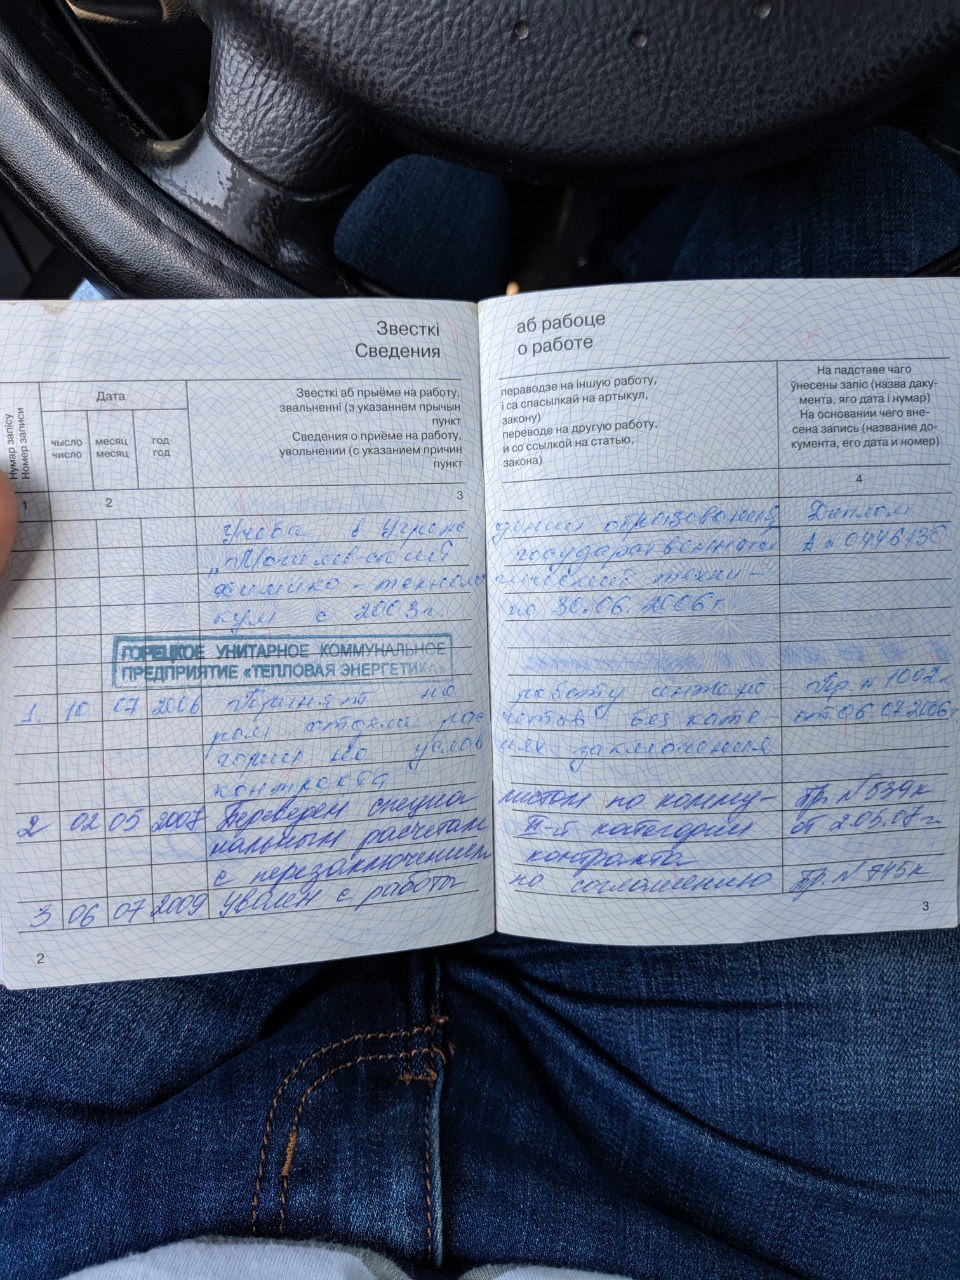 Звесткі
Сведения
Нумар запісу
Номер записи
Дата
чысло
число
месяц
месяц
год
год
Звесткі аб прыёме на работу,
звальненні (з указаннем прычын
пункт
Сведения о приёме на работу,
увольнении (с указанием причин
пункт
1 2 3
Учеба в Учреж
„Могилевский
химико-технолог
кум с 2003г
ГОРЕЦКОЕ УНИТАРНОЕ КОММУНАЛЬНОЕ
ПРЕДПРИЯТИЕ «ТЕПЛОВАЯ ЭНЕРГЕТИКА»
1. 10 07 2006 Принят на
ром отдела рас
гории на услов
контракта
2 02 05 2007 Переведен специа
нальным расчетам
с перезаключением
3 06 07 2009 Уволен с работы
2
аб рабоце
о работе
пераводзе на іншую работу,
і са спасылкай на артыкул,
закону)
переводе на другую работу,
и со ссылкой на статью,
закона)
На падставе чаго
ўнесены запіс (назва даку-
мента, яго дата і нумар)
На основании чего вне-
сена запись (название до-
кумента, его дата и номер)
4
дении образования Диплом
государственный А № 0446136
ический техни-
по 30.06.2006г
работу инжене- Пр. № 1002к
четов без кате от 06.07.2006г
иях заключения
листом по комму- Пр. № 539к
II-й категории от 2.05.07г
контракта
по соглашению Пр. № 745к
3